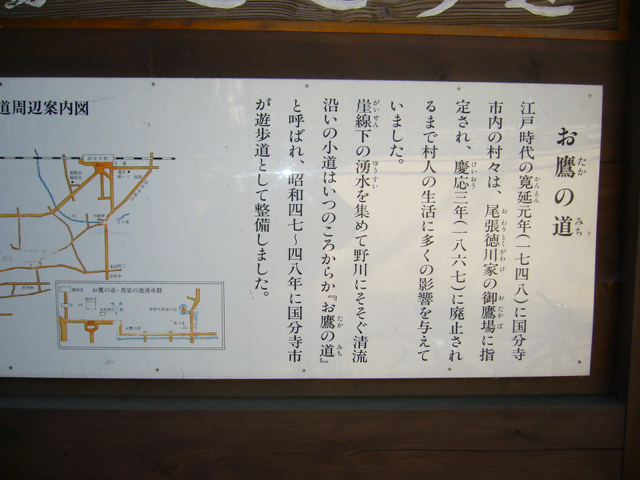 お鷹の道
たか みち
江戸時代の寛延元年(一七四八)に国分寺
かんえん
市内の村々は、尾張徳川家の御鷹場に指
おわりとくがわけ おたかば
定され、慶応三年(一八六七)に廃止され
けいおう
るまで村人の生活に多くの影響を与えて
いました。
崖線下の湧水を集めて野川にそそぐ清流
がいせん ゆうすい
沿いの小道はいつのころからか『お鷹の道』
たか みち
と呼ばれ、昭和四七〜四八年に国分寺市
が遊歩道として整備しました。
道周辺案内図
お鷹の道・真姿の池湧水群